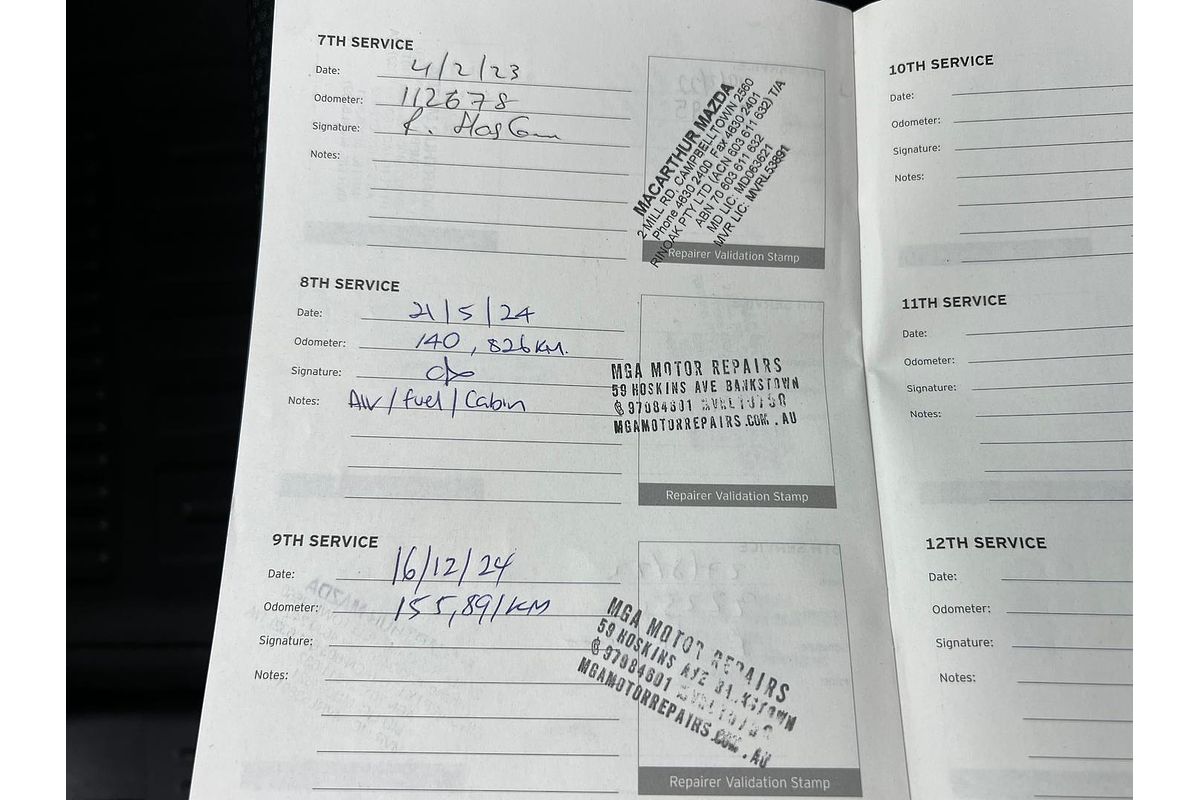 7TH SERVICE
Date: 4/2/23
Odometer: 112678
Signature:
Notes:
MACARTHUR MAZDA
2 MILL RD, CAMPBELLTOWN 2560
Phone 4630 2400 Fax 4630 2401
RINOAK PTY LTD (ACN 603 611 632) T/A
ABN 70 603 611 632
MD LIC: MD063621
MVR LIC: MVRL53891
Repairer Validation Stamp
8TH SERVICE
Date: 21/5/24
Odometer: 140,826KM.
Signature:
Notes: AW/fuel/Cabin
MGA MOTOR REPAIRS
59 HOSKINS AVE BANKSTOWN
97084601
MGAMOTORREPAIRS.COM.AU
Repairer Validation Stamp
9TH SERVICE
Date: 16/12/24
Odometer: 155,891KM
Signature:
Notes:
MGA MOTOR REPAIRS
59 HOSKINS AVE BANKSTOWN
97084601
MGAMOTORREPAIRS.COM.AU
Repairer Validation Stamp
10TH SERVICE
Date:
Odometer:
Signature:
Notes:
11TH SERVICE
Date:
Odometer:
Signature:
Notes:
12TH SERVICE
Date:
Odometer:
Signature:
Notes: